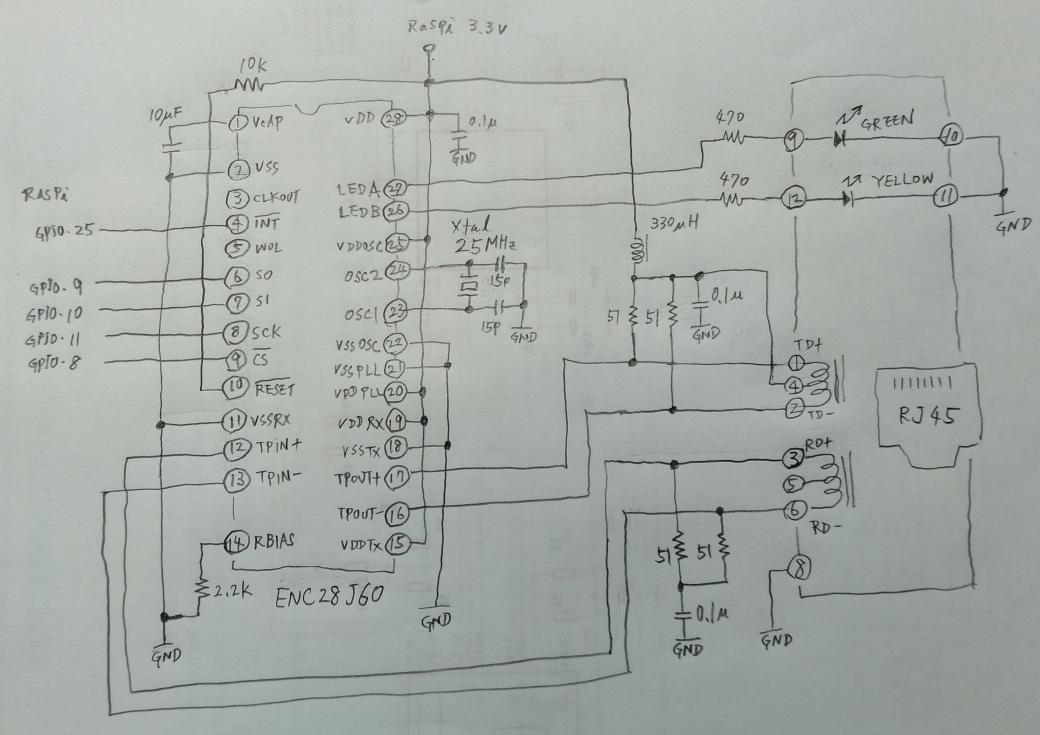 RasPi 3.3V
10K
10μF
① VCAP
VDD ㉘
0.1μ
GND
470
⑨
GREEN
⑩
② VSS
③ CLKOUT
LEDA ㉗
470
⑫
YELLOW
⑪
RASPi
GPIO-25
④ INT
LEDB ㉖
GND
⑤ WOL
VDDOSC ㉕
Xtal
25MHz
330μH
GPIO-9
⑥ SO
OSC2 ㉔
15P
GPIO-10
⑦ SI
OSC1 ㉓
15P
GND
51
51
0.1μ
GND
GPIO-11
⑧ SCK
VSSOSC ㉒
GPIO-8
⑨ CS
VSSPLL ㉑
TD+
①
④
②
TD-
⑩ RESET
VDDPLL ⑳
RJ45
⑪ VSSRX
VDDRX ⑲
⑫ TPIN+
VSSTX ⑱
RD+
③
⑤
⑥
RD-
⑬ TPIN-
TPOUT+ ⑰
TPOUT- ⑯
⑭ RBIAS
VDDTX ⑮
51
51
⑧
2.2K
ENC28J60
GND
0.1μ
GND
GND
GND